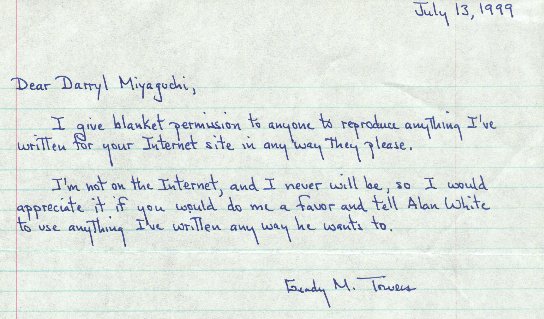 July 13, 1999
Dear Darryl Miyaguchi,
I give blanket permission to anyone to reproduce anything I've
written for your Internet site in any way they please.
I'm not on the Internet, and I never will be, so I would
appreciate it if you would do me a favor and tell Alan White
to use anything I've written any way he wants to.
Grady M. Towers